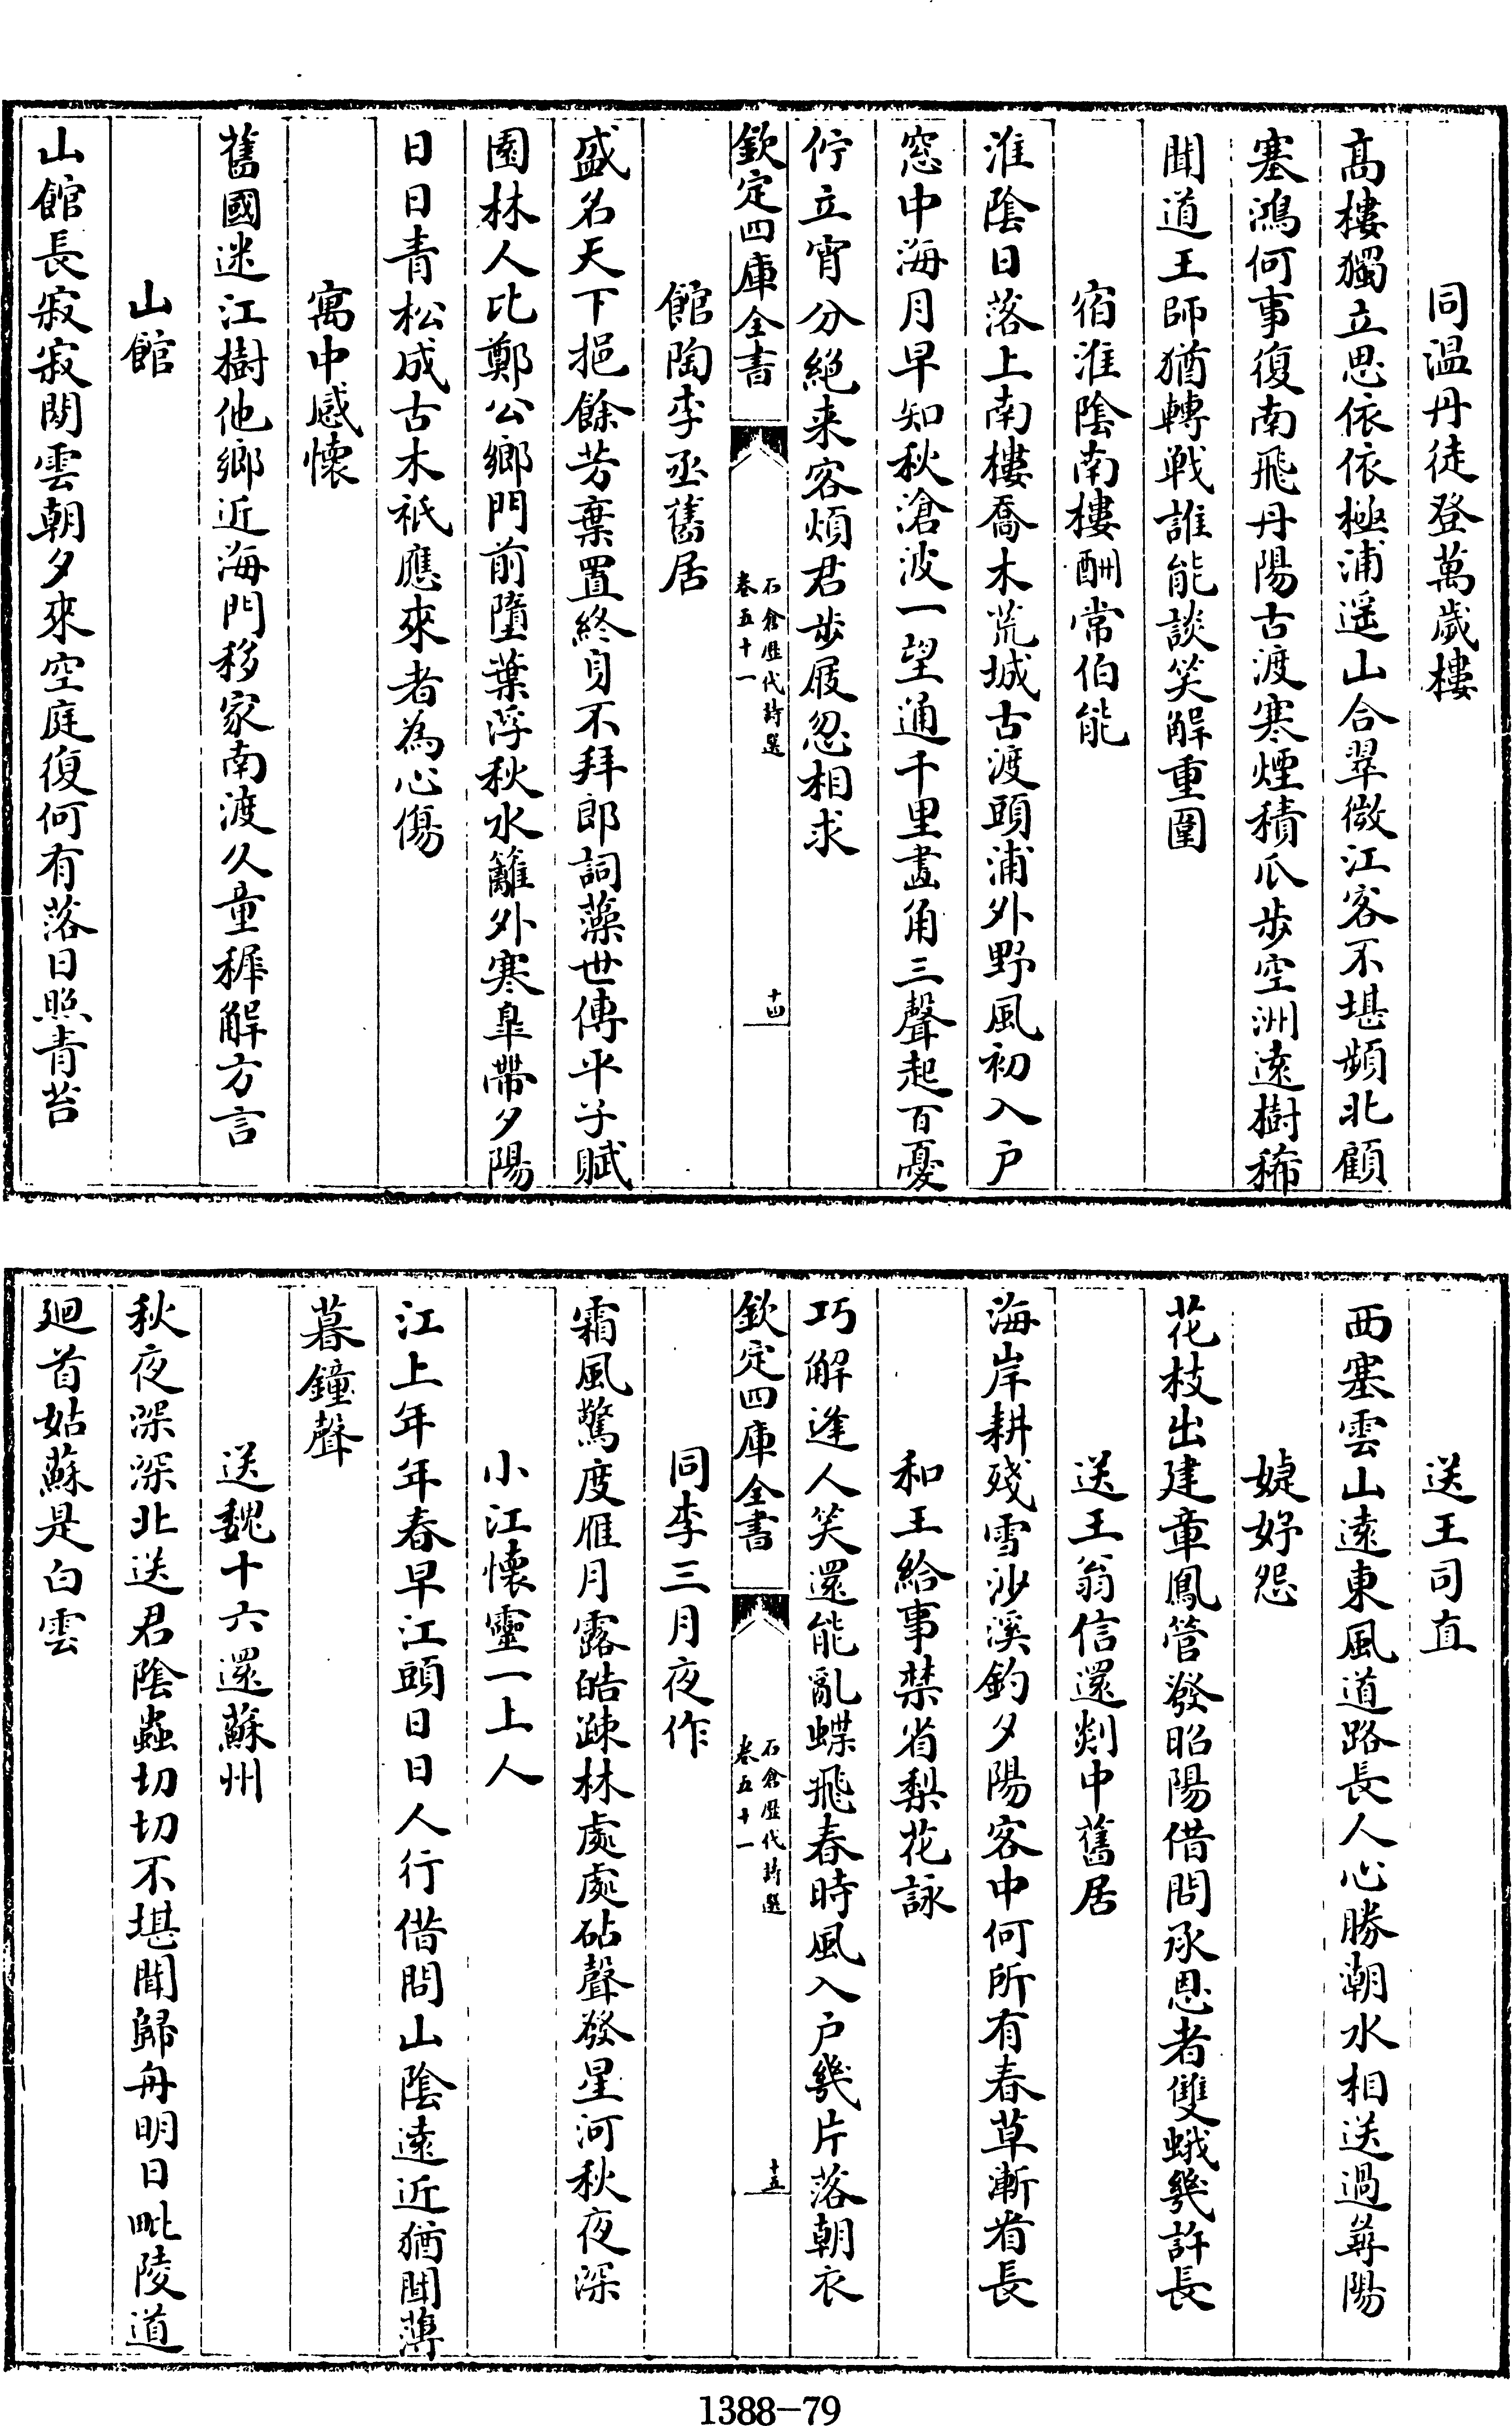 同温丹徒登萬歲樓
髙樓獨立思依依極浦遥山合翠微江客不堪頻北顧
塞鴻何事復南飛丹陽古渡寒煙積瓜步空洲逺樹稀
聞道王師猶轉戰誰能談笑解重圍
宿淮陰南樓酬常伯能
淮陰日落上南樓喬木荒城古渡頭浦外野風初入戸
窓中海月早知秋滄波一望通千里畫角三聲起百憂
佇立宵分絶来客煩君步屐忽相求
欽定四庫全書
石倉歷代詩選
卷五十一
十四
館陶李丞舊居
盛名天下挹餘芳棄置終身不拜郎詞藻世傳平子賦
園林人比鄭公鄉門前墮葉浮秋水籬外寒臯帶夕陽
日日青松成古木祇應來者為心傷
寓中感懷
舊國迷江樹他鄉近海門移家南渡久童穉解方言
山館
山館長寂寂閑雲朝夕來空庭復何有落日照青苔
送王司直
西塞雲山逺東風道路長人心勝潮水相送過尋陽
婕妤怨
花枝出建章鳳管發昭陽借問承恩者雙蛾幾許長
送王翁信還剡中舊居
海岸耕殘雪沙溪釣夕陽客中何所有春草漸看長
和王給事禁省梨花詠
巧解逢人笑還能亂蝶飛春時風入戸幾片落朝衣
欽定四庫全書
石倉歷代詩選
卷五十一
十五
同李三月夜作
霜風驚度雁月露皓疎林處處砧聲發星河秋夜深
小江懷靈一上人
江上年年春早江頭日日人行借問山陰逺近猶聞薄
暮鐘聲
送魏十六還蘇州
秋夜深深北送君陰蟲切切不堪聞歸舟明日毗陵道
迴首姑蘇是白雲
1388-79